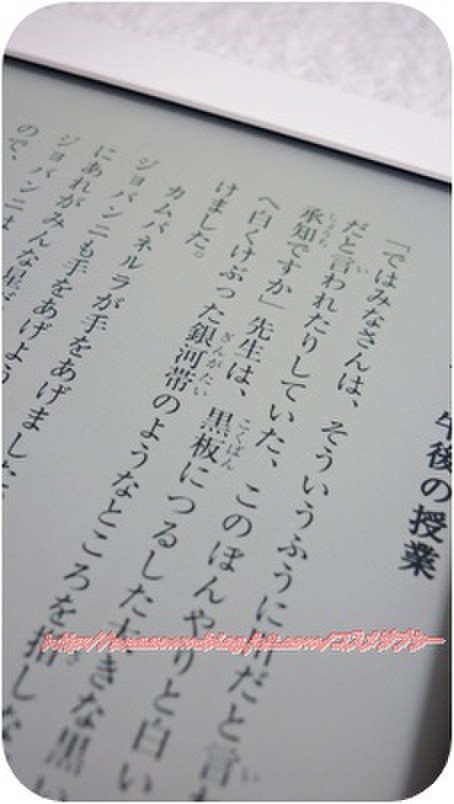 午後の授業
「ではみなさんは、そういうふうに川だと言
だと言われたりしていた、このぼんやりと白い
承知ですか」先生は、黒板につるした大きな黒い
へ白くけぶった銀河帯のようなところを指しな
けました。
カムパネルラが手をあげました
ジョバンニも手をあげよう
にあれがみんな星だ
ジョバンニは
ので、